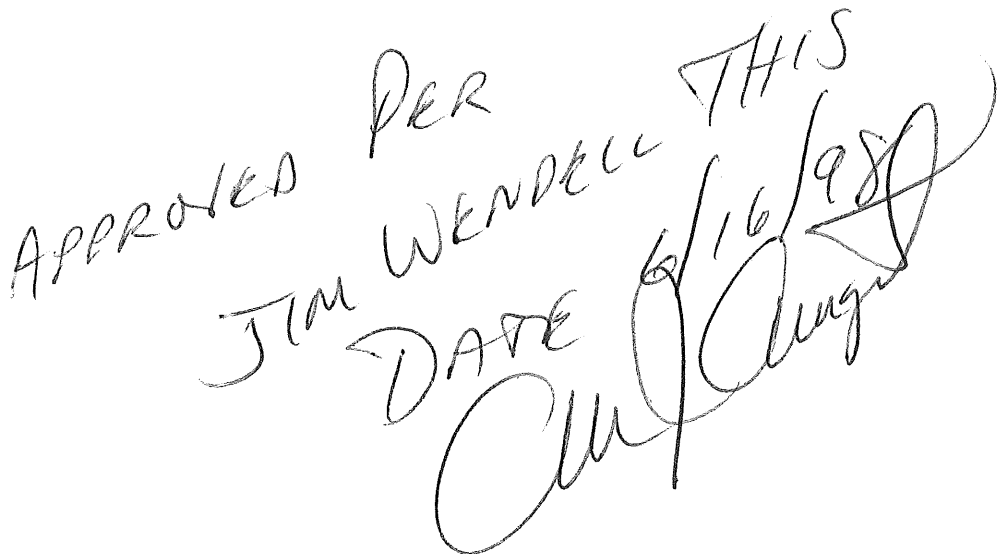 APPROVED PER
JIM WENDELL THIS
DATE 6/16/98